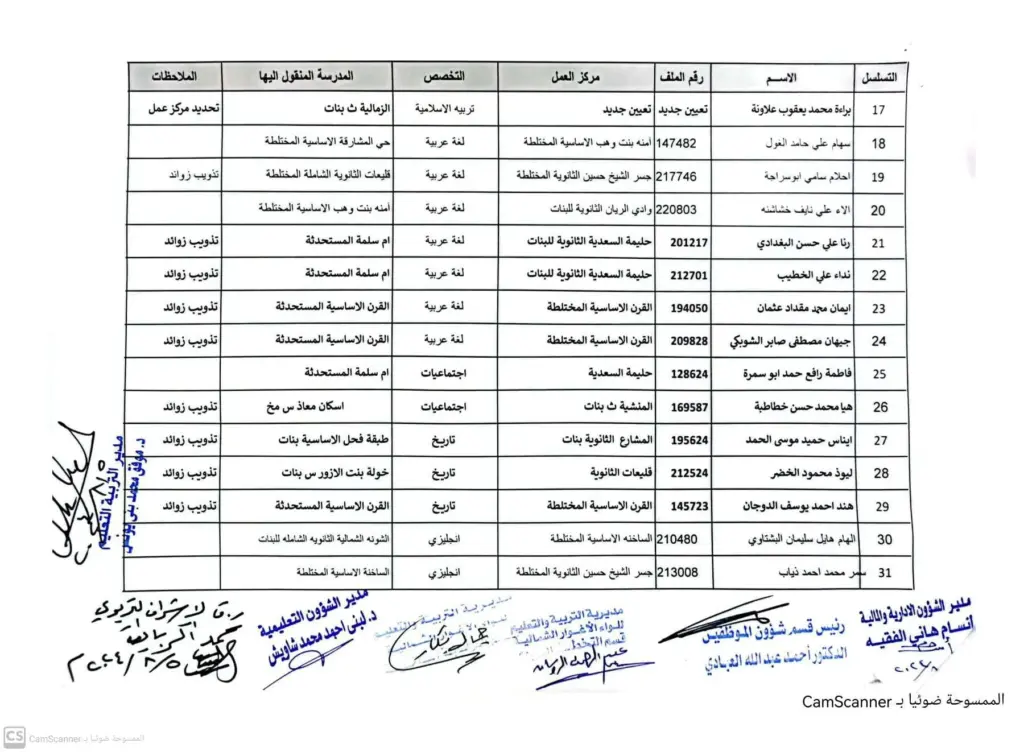 التسلسل الاســـم رقم الملف مركز العمل التخصص المدرسة المنقول اليها الملاحظات
17 براءة محمد يعقوب علاونة تعيين جديد تعيين جديد تربيه الاسلامية الزمالية ث بنات تحديد مركز عمل
18 سهام علي حامد الغول 147482 آمنه بنت وهب الاساسية المختلطة لغة عربية حي المشارقة الاساسية المختلطة
19 احلام سامي ابوسراجة 217746 جسر الشيخ حسين الثانوية المختلطة لغة عربية قليعات الثانوية الشاملة المختلطة تذويب زوائد
20 الاء علي نايف خشاشنه 220803 وادي الريان الثانوية للبنات لغة عربية آمنه بنت وهب الاساسية المختلطة
21 رنا علي حسن البغدادي 201217 حليمة السعدية الثانوية للبنات لغة عربية ام سلمة المستحدثة تذويب زوائد
22 نداء علي الخطيب 212701 حليمة السعدية الثانوية للبنات لغة عربية ام سلمة المستحدثة تذويب زوائد
23 ايمان محمد مقداد عثمان 194050 القرن الاساسية المختلطة لغة عربية القرن الاساسية المستحدثة تذويب زوائد
24 جيهان مصطفى صابر الشوبكي 209828 القرن الاساسية المختلطة لغة عربية القرن الاساسية المستحدثة تذويب زوائد
25 فاطمة رافع حمد ابو سمرة 128624 حليمة السعدية اجتماعيات ام سلمة المستحدثة
26 هيا محمد حسن خطاطبة 169587 المنشية ث بنات اجتماعيات اسكان معاذ س مخ تذويب زوائد
27 ايناس حميد موسى الحمد 195624 المشارع الثانوية بنات تاريخ طبقة فحل الاساسية بنات تذويب زوائد
28 ليوذ محمود الخضر 212524 قليعات الثانوية تاريخ خولة بنت الازور س بنات تذويب زوائد
29 هند احمد يوسف الدوجان 145723 القرن الاساسية المختلطة تاريخ القرن الاساسية المستحدثة تذويب زوائد
30 الهام هايل سليمان البشتاوي 210480 الساخنه الاساسية المختلطة انجليزي الشونه الشمالية الثانويه الشامله للبنات
31 سمر محمد احمد ذياب 213008 جسر الشيخ حسين الثانوية المختلطة انجليزي الساخنة الاساسية المختلطة
مدير التربية التعليم
د. موفق محمد بني يونس
مدير الشؤون الادارية والمالية
انسام هاني الفقيه
رئيس قسم شؤون الموظفين
الدكتور أحمد عبد الله العبادي
مديرية التربية والتعليم
للواء الأغوار الشمالية
مديرية التربية والتعليم
مدير الشؤون التعليمية
د. لبنى احمد محمد شاويش
٢٠٢٤/٨/٥
الممسوحة ضوئيا بـ CamScanner
CS CamScanner الممسوحة ضوئيا بـ